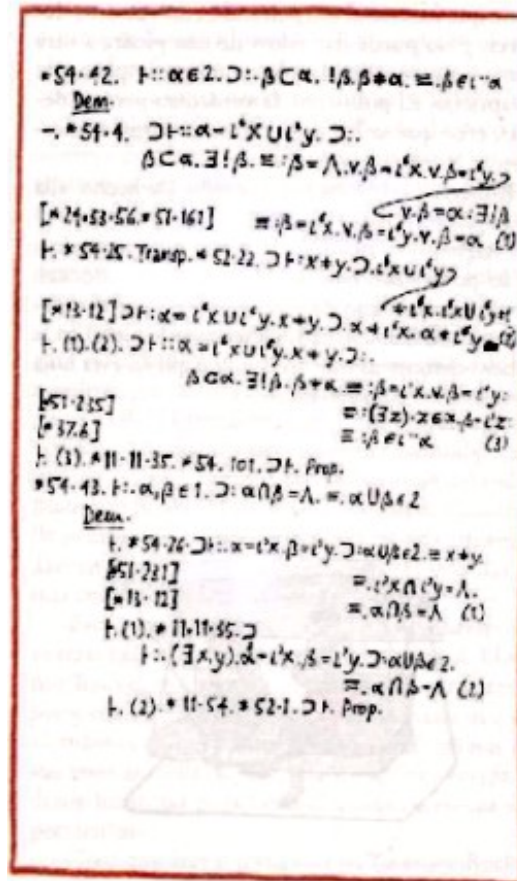 *54·42. ⊢:: α ∈ 2. ⊃:. β ⊂ α. !β. β ≠ α. ≡. β ∈ ι``α
Dem.
⊢. *54·4. ⊃ ⊢:: α = ι‘x ∪ ι‘y. ⊃:.
β ⊂ α. ∃!β. ≡: β = Λ. v. β = ι‘x. v. β = ι‘y.
v. β = α: ∃!β
[*24·53·56. *51·161] ≡: β = ι‘x. v. β = ι‘y. v. β = α (1)
⊢. *54·25. Transp. *52·22. ⊃ ⊢: x ≠ y. ⊃. ι‘x ∪ ι‘y
≠ ι‘x. ι‘x ∪ ι‘y ≠
[*13·12] ⊃ ⊢: α = ι‘x ∪ ι‘y. x ≠ y. ⊃. α ≠ ι‘x. α ≠ ι‘y (2)
⊢. (1). (2). ⊃ ⊢:: α = ι‘x ∪ ι‘y. x ≠ y. ⊃:.
β ⊂ α. ∃!β. β ≠ α. ≡: β = ι‘x. v. β = ι‘y:
[*51·235] ≡: (∃z). z ∈ α. β = ι‘z:
[*37·6] ≡: β ∈ ι``α (3)
⊢. (3). *11·11·35. *54·101. ⊃ ⊢. Prop.
*54·43. ⊢:. α, β ∈ 1. ⊃: α ∩ β = Λ. ≡. α ∪ β ∈ 2
Dem.
⊢. *54·26. ⊃ ⊢:. α = ι‘x. β = ι‘y. ⊃: α ∪ β ∈ 2. ≡ x ≠ y.
[*51·231] ≡. ι‘x ∩ ι‘y = Λ.
[*13·12] ≡. α ∩ β = Λ (1)
⊢. (1). *11·11·35. ⊃
⊢:. (∃x, y). α = ι‘x. β = ι‘y. ⊃: α ∪ β ∈ 2.
≡. α ∩ β = Λ (2)
⊢. (2). *11·54. *52·1. ⊃ ⊢. Prop.